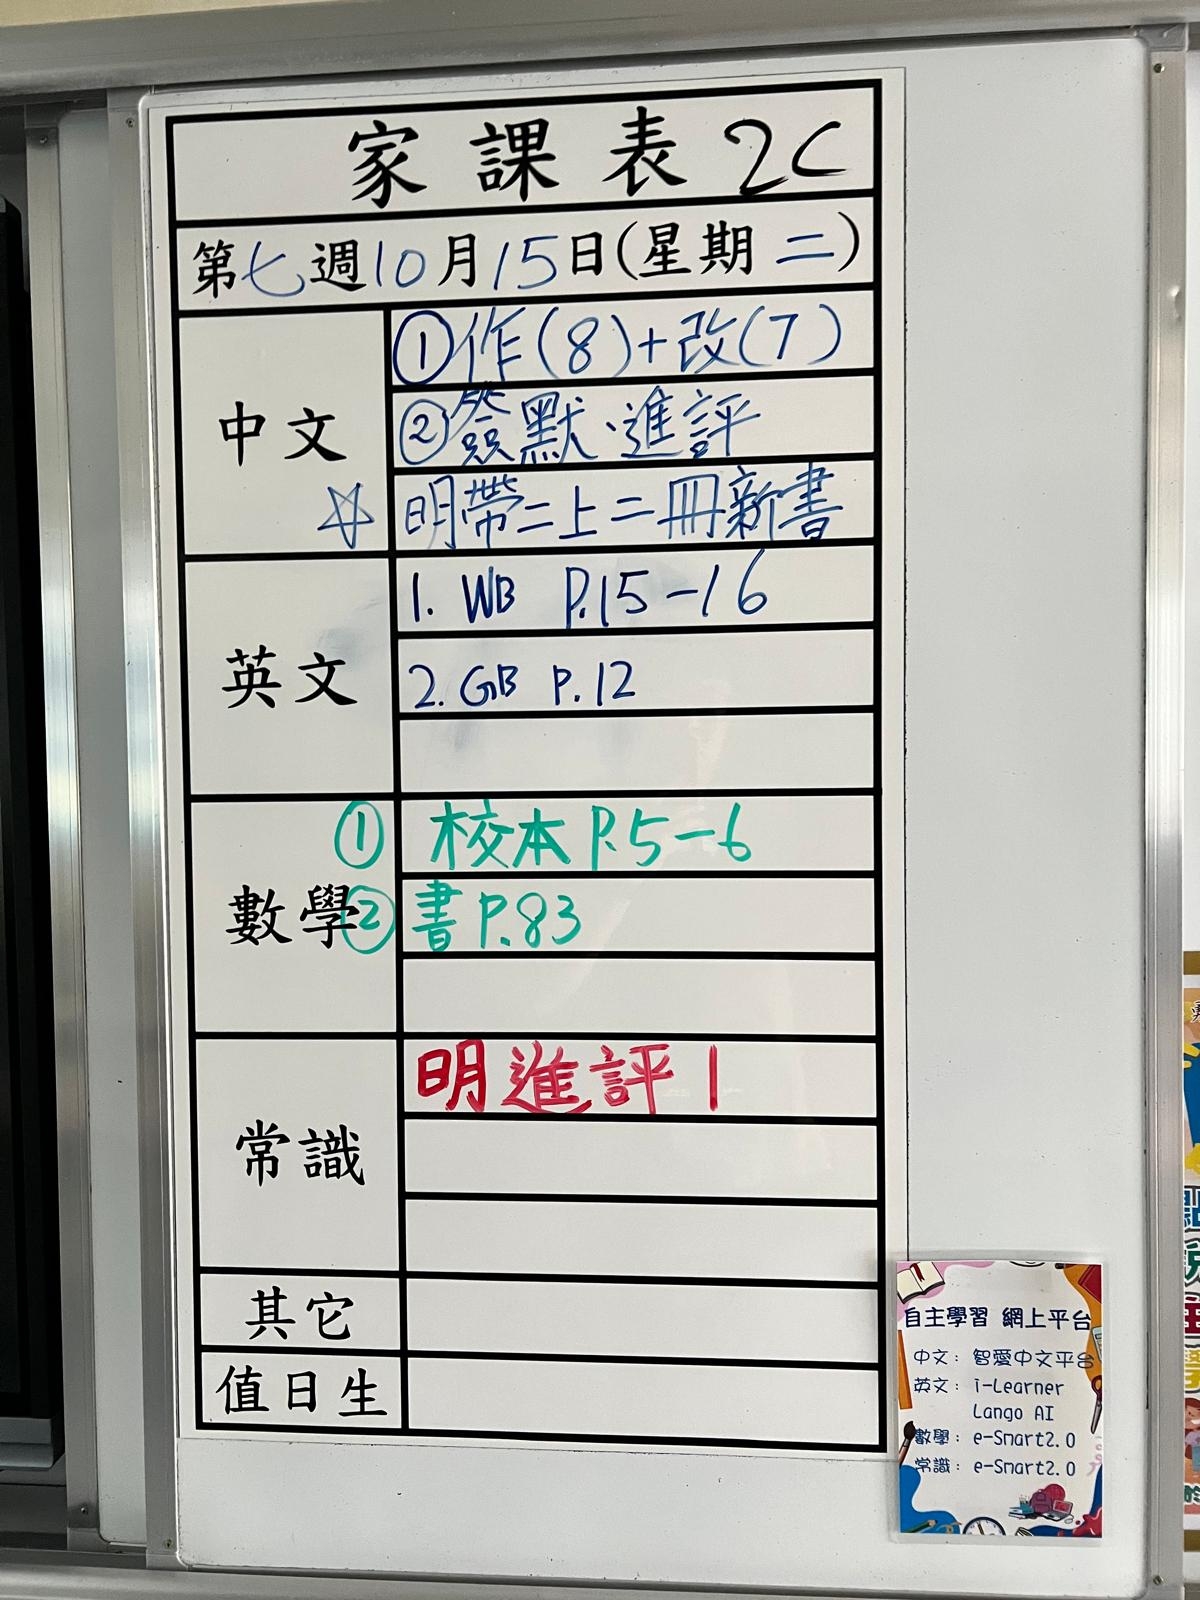 家課表 2C
第七週10月15日(星期二)
中文
①作(8)+改(7)
②簽默、進評
☆明帶二上二冊新書
英文
1. WB P.15-16
2. GB P.12
數學
① 校本 P.5-6
② 書 P.83
常識
明進評1
其它
值日生
自主學習 網上平台
中文: 智愛中文平台
英文: i-Learner
Lango AI
數學: e-Smart2.0
常識: e-Smart2.0